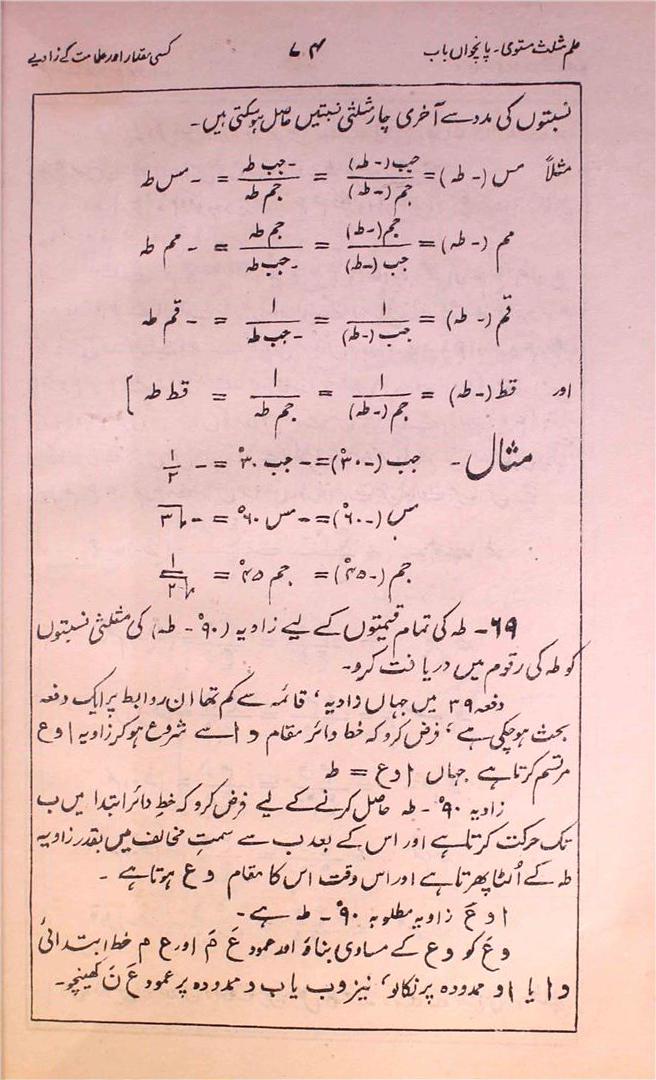 علم مثلث مستوی۔ پانچواں باب ۷۴ کسی مقدار اور علامت کے زاویے
نسبتوں کی مدد سے آخری چار مثلثی نسبتیں حاصل ہوسکتی ہیں۔
مثلاً مس (- طہ) = جب (- طہ) / جم (- طہ) = - جب طہ / جم طہ = - مس طہ
مم (- طہ) = جم (- طہ) / جب (- طہ) = جم طہ / - جب طہ = - مم طہ
قم (- طہ) = ۱ / جب (- طہ) = ۱ / - جب طہ = - قم طہ
اور قط (- طہ) = ۱ / جم (- طہ) = ۱ / جم طہ = قط طہ ]
مثال۔ جب (- ۳۰°) = - جب ۳۰° = - ۱/۲
مس (- ۶۰°) = - مس ۶۰° = - √۳
جم (- ۴۵°) = جم ۴۵° = ۱/√۲
۶۹۔ طہ کی تمام قیمتوں کے لیے زاویہ (۹۰° - طہ) کی مثلثی نسبتوں
کو طہ کی رقوم میں دریافت کرو۔
دفعہ ۳۹ میں جہاں زاویہ، قائمہ سے کم تھا ان روابط پر ایک دفعہ
بحث ہوچکی ہے، فرض کرو کہ خط دائر مقام و ا سے شروع ہوکر زاویہ ا و ع
مرتسم کرتا ہے جہاں ا و ع = طہ
زاویہ ۹۰° - طہ حاصل کرنے کے لیے فرض کرو کہ خط دائر ابتدا میں ب
تک حرکت کرتا ہے اور اس کے بعد ب سے سمتِ مخالف میں بقدر زاویہ
طہ کے اُلٹا پھرتا ہے اور اس وقت اس کا مقام و عَ ہوتا ہے۔
ا و عَ زاویہ مطلوبہ ۹۰° - طہ ہے۔
و عَ کو و ع کے مساوی بناؤ اور عمود عَ مَ اور ع م خط ابتدائی
و ا یا ا و ممدودہ پر نکالو، نیز و ب یا ب و ممدودہ پر عمود عَ نَ کھینچو۔